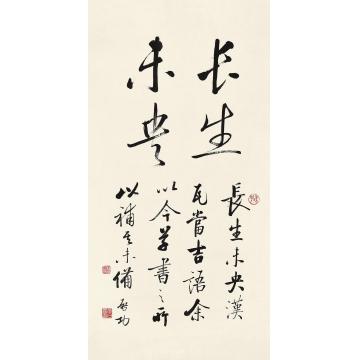 长生
未央
長生未央漢
瓦當吉語余
以今草書之所
以補其未備
啟功